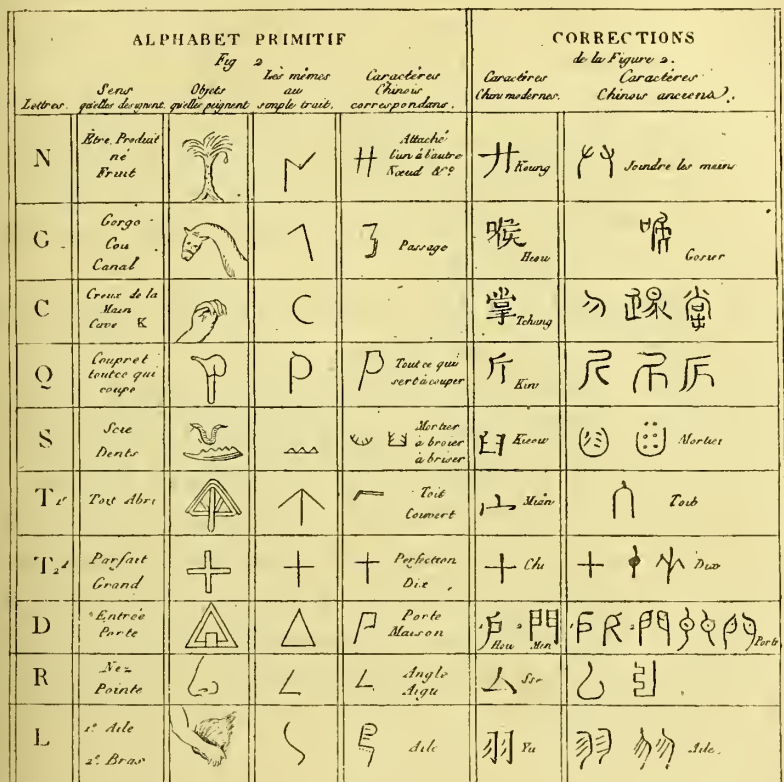 ALPHABET PRIMITIF
Fig 2
CORRECTIONS
de la Figure 2.
Lettres.
Sens
qu'elles designent.
Objets
qu'elles peignent
Les mêmes
au
simple trait.
Caractères
Chinois
correspondans.
Caractères
Chin. modernes.
Caractères
Chinois anciens.
N
Être Produit
né
Fruit
Attaché
l'un à l'autre
Nœud &c.
廾 Koung
Joindre les mains
G
Gorge
Cou
Canal
Passage
喉 Heou
Gosier
C
Creux de la
Main
Cave K
掌 Tchang
Q
Coupret
tout ce qui
coupe
Tout ce qui
sert à couper
斤 Kin
S
Scie
Dents
Mortier
à broier
à briser
臼 Kieou
Mortier
T 1r
Toit Abri
Toit
Couvert
宀 Mian
Toit
T 2d
Parfait
Grand
十 Perfection
Dix
十 Chi
十
Dix
D
Entrée
Porte
Porte
Maison
戶 Hou
門 Men
Porte
R
Nez
Pointe
Angle
Aigu
厶 Sse
L
1º Aile
2º Bras
Aile
羽 Yu
Aile.